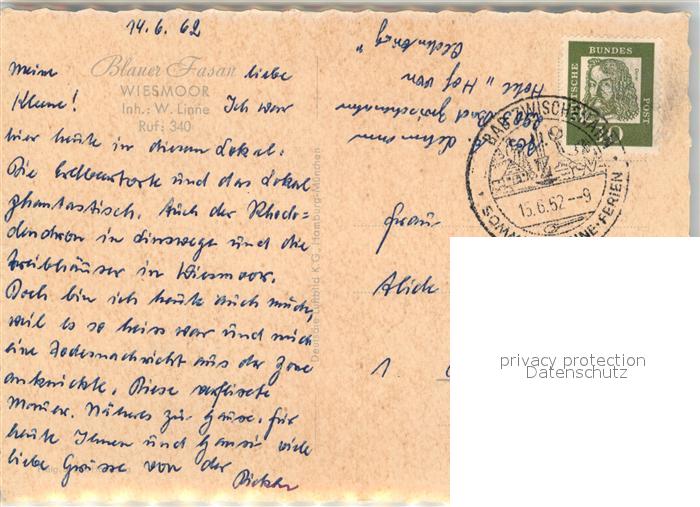 14.6.62
Blauer Fasan
WIESMOOR
Inh.: W. Linne
Ruf: 340
Meine liebe
Kleine! Ich war
hier heute in diesem Lokal.
Die Erdbeertorte und das Lokal
phantastisch. Auch der Rhodo-
dendron in Linswege und die
Treibhäuser in Wiesmoor.
Doch bin ich heute auch müde,
weil es so heiss war und mich
eine Todesnachricht aus der Zone
anknickte. Diese verflixte
Mauer. Näheres zu Hause. Für
heute Ihnen und Hansi viele
liebe Grüsse von der
Dicken
Deutsche Luftbild K.G. Hamburg-München
Hotel "Hof von
Oldenburg"
Bad Zwischenahn
DEUTSCHE BUNDESPOST
BAD ZWISCHENAHN
15.6.62--9
Frau
1
privacy protection
Datenschutz